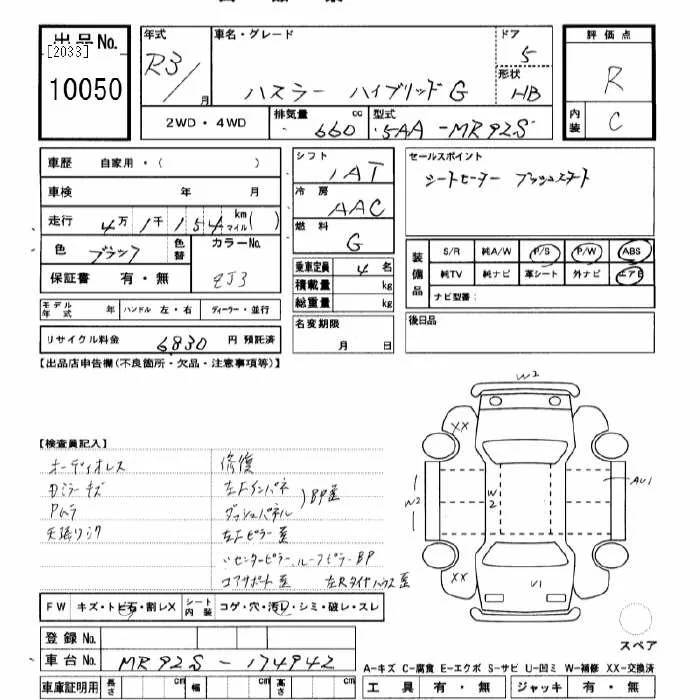 出品No.
[2033]
10050
年式
R3/
月
車名・グレード
ハスラー ハイブリッドG
ドア
5
形状
HB
評価点
R
内装
C
2WD・4WD
排気量
660
cc
型式
5AA-MR92S
車歴 自家用・( )
車検 年 月
走行 4万1千154 km マイル( )
色 ブラック
色替
カラーNo.
ZJ3
保証書 有・無
モデル年式 年 ハンドル 左・右 ディーラー・並行
リサイクル料金 6830 円 預託済
シフト
AT
冷房
AAC
燃料
G
乗車定員 4 名
積載量 kg
総重量 kg
名変期限
月 日
セールスポイント
シートヒーター プッシュスタート
装備品
S/R 純A/W P/S P/W ABS
純TV 純ナビ 革シート 外ナビ エアB
ナビ型番:
後日品
【出品店申告欄(不良箇所・欠品・注意事項等)】
【検査員記入】
オーディオレス
Pムラ
修復
左Fインパネ
ダッシュパネル
BP歪
左Fピラー歪
〃センターピラー、ルーフピラーBP
コアサポート歪
左Rタイヤハウス歪
W2
XX
W2
W2
AU1
XX
U1
スペア
FW キズ・トビ石・割レX シート内装 コゲ・穴・汚レ・シミ・破レ・スレ
登録No.
車台No. MR92S-174942
車庫証明用 長さ cm 幅 cm 高さ cm
A-キズ C-腐食 E-エクボ S-サビ U-凹ミ W-補修 XX-交換済
工具 有・無 ジャッキ 有・無